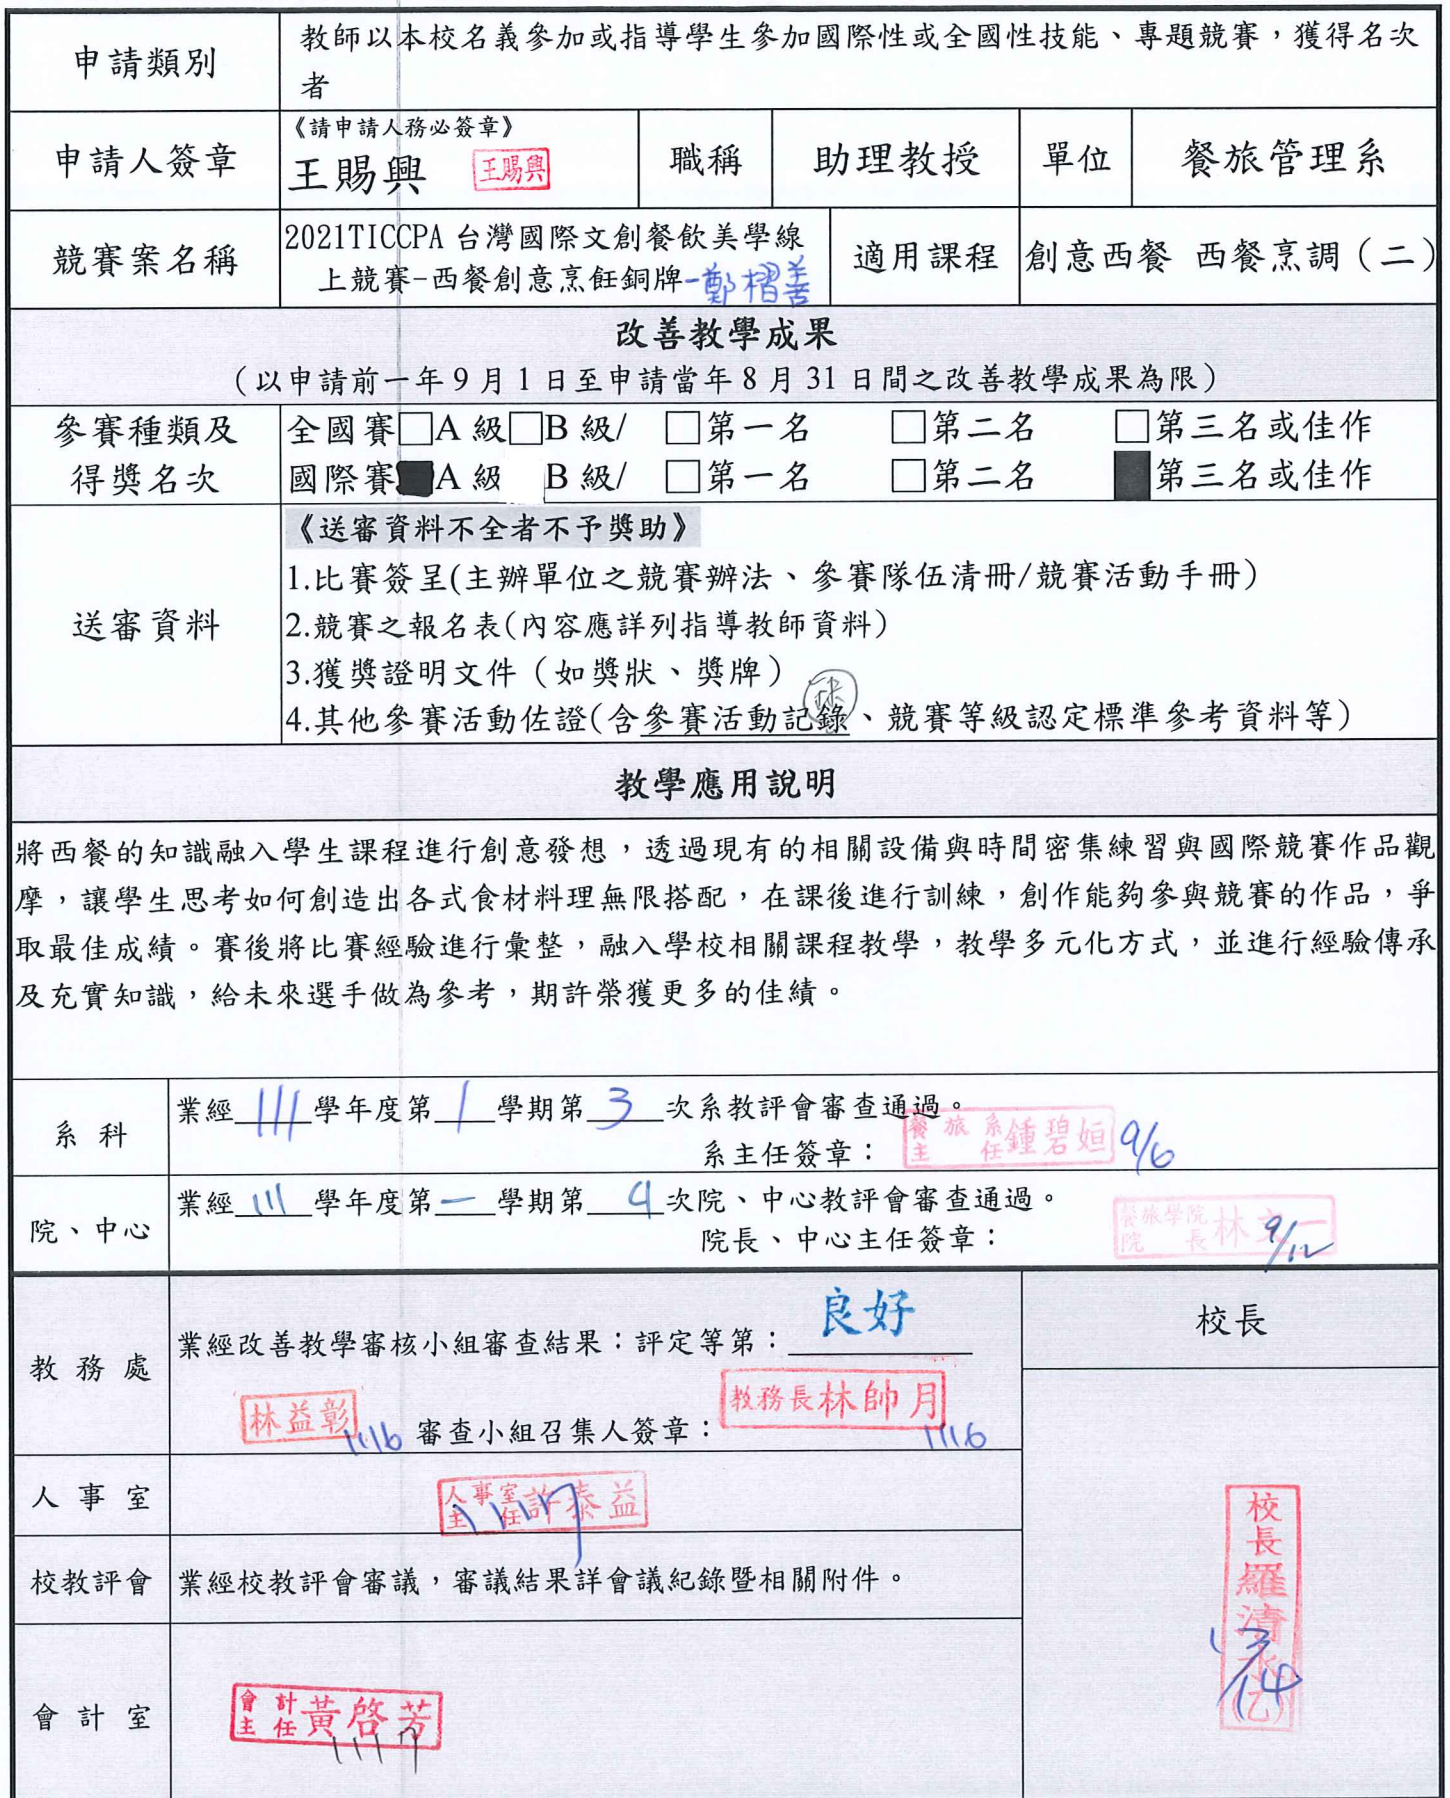 申請類別
教師以本校名義參加或指導學生參加國際性或全國性技能、專題競賽，獲得名次
者
申請人簽章
《請申請人務必簽章》
王賜興 王賜興
職稱
助理教授
單位
餐旅管理系
競賽案名稱
2021TICCPA 台灣國際文創餐飲美學線
上競賽-西餐創意烹飪銅牌-鄭榴善
適用課程
創意西餐 西餐烹調（二）
改善教學成果
（以申請前一年 9 月 1 日至申請當年 8 月 31 日間之改善教學成果為限）
參賽種類及
得獎名次
全國賽□A 級□B 級/ □第一名 □第二名 □第三名或佳作
國際賽■A 級 B 級/ □第一名 □第二名 ■第三名或佳作
送審資料
《送審資料不全者不予獎助》
1.比賽簽呈(主辦單位之競賽辦法、參賽隊伍清冊/競賽活動手冊)
2.競賽之報名表(內容應詳列指導教師資料)
3.獲獎證明文件（如獎狀、獎牌）
4.其他參賽活動佐證(含參賽活動記錄、競賽等級認定標準參考資料等)
教學應用說明
將西餐的知識融入學生課程進行創意發想，透過現有的相關設備與時間密集練習與國際競賽作品觀
摩，讓學生思考如何創造出各式食材料理無限搭配，在課後進行訓練，創作能夠參與競賽的作品，爭
取最佳成績。賽後將比賽經驗進行彙整，融入學校相關課程教學，教學多元化方式，並進行經驗傳承
及充實知識，給未來選手做為參考，期許榮獲更多的佳績。
系科
業經 111 學年度第 1 學期第 3 次系教評會審查通過。
系主任簽章： 餐旅系主任鍾碧姮 9/6
院、中心
業經 111 學年度第 一 學期第 4 次院、中心教評會審查通過。
院長、中心主任簽章： 餐旅學院院長林文一 9/12
教務處
業經改善教學審核小組審查結果：評定等第： 良好
林益彰 1116 審查小組召集人簽章： 教務長林帥月 1116
校長
人事室
人事室主任許泰益 1117
校教評會
業經校教評會審議，審議結果詳會議紀錄暨相關附件。
會計室
會計主任黃啓芳 1117
校長羅清水(乙)